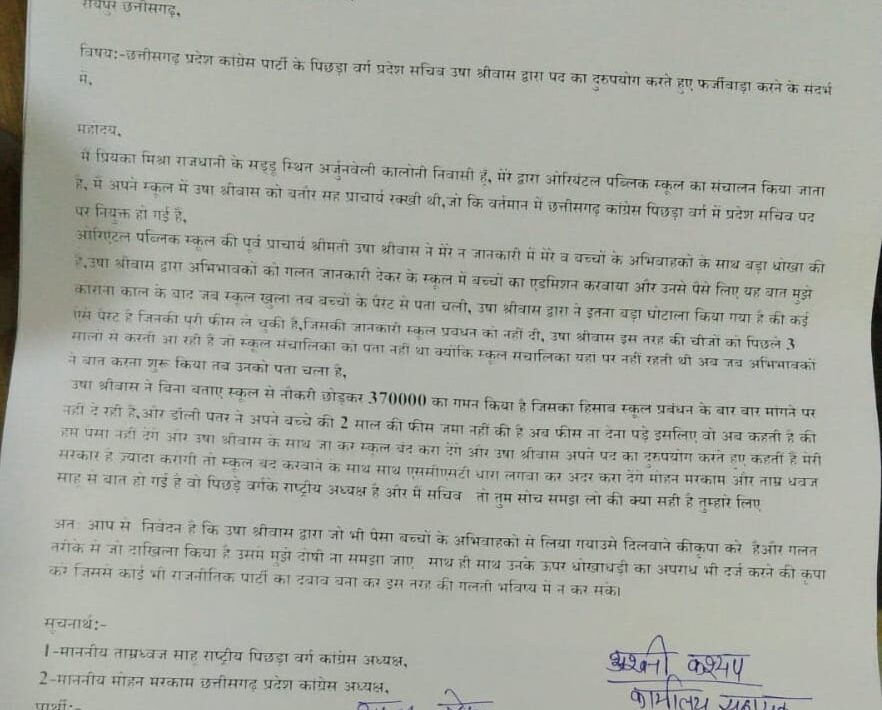 रायपुर छत्तीसगढ़,
विषय:-छत्तीसगढ़ प्रदेश कांग्रेस पार्टी के पिछड़ा वर्ग प्रदेश सचिव उषा श्रीवास द्वारा पद का दुरुपयोग करते हुए फर्जीवाड़ा करने के संदर्भ
में,
महोदय,
मैं प्रियका मिश्रा राजधानी के सड्डू स्थित अर्जुनवेली कालोनी निवासी हूँ, मेरे द्वारा ओरियंटल पब्लिक स्कूल का संचालन किया जाता
है, मै अपने स्कूल में उषा श्रीवास को बतौर सह प्राचार्य रक्खी थी,जो कि वर्तमान में छत्तीसगढ़ कांग्रेस पिछड़ा वर्ग में प्रदेश सचिव पद
पर नियुक्त हो गई है,
ओरिएंटल पब्लिक स्कूल की पूर्व प्राचार्य श्रीमती उषा श्रीवास ने मेरे न जानकारी में मेरे व बच्चों के अभिवाहको के साथ बड़ा धोखा की
है,उषा श्रीवास द्वारा अभिभावकों को गलत जानकारी देकर के स्कूल में बच्चों का एडमिशन करवाया और उनसे पैसे लिए यह बात मुझे
कारोना काल के बाद जब स्कूल खुला तब बच्चों के पैरेंट से पता चली, उषा श्रीवास द्वारा ने इतना बड़ा घोटाला किया गया है की कई
ऐसे पैरेंट है जिनकी पूरी फीस ले चुकी है,जिसकी जानकारी स्कूल प्रबंधन को नहीं दी, उषा श्रीवास इस तरह की चीजों को पिछले 3
सालों से करती आ रही है जो स्कूल संचालिका को पता नहीं था क्योंकि स्कूल संचालिका यहां पर नहीं रहती थी अब जब अभिभावकों
ने बात करना शुरू किया तब उनको पता चला है,
उषा श्रीवास ने बिना बताए स्कूल से नौकरी छोड़कर 370000 का गमन किया है जिसका हिसाब स्कूल प्रबंधन के बार बार मांगने पर
नहीं दे रही है,और डॉली पतर ने अपने बच्चे की 2 साल की फीस जमा नहीं की है अब फीस ना देना पड़े इसलिए वो अब कहती है की
हम पैसा नहीं देंगे और उषा श्रीवास के साथ जा कर स्कूल बंद करा देंगे और उषा श्रीवास अपने पद का दुरुपयोग करते हुए कहतीं है मेरी
सरकार है ज्यादा करोगी तो स्कूल बंद करवाने के साथ साथ एससीएसटी धारा लगवा कर अंदर करा देंगे मोहन मरकाम और ताम्र धवज
साहू से बात हो गई है वो पिछड़े वर्गके राष्ट्रीय अध्यक्ष है और मैं सचिव तो तुम सोच समझ लो की क्या सही है तुम्हारे लिए
अतः आप से निवेदन है कि उषा श्रीवास द्वारा जो भी पैसा बच्चों के अभिवाहको से लिया गयाउसे दिलवाने कीकृपा करे हैऔर गलत
तरीके से जो दाखिला किया है उसमे मुझे दोषी ना समझा जाए साथ ही साथ उनके ऊपर धोखाधड़ी का अपराध भी दर्ज करने की कृपा
करे जिससे कोई भी राजनीतिक पार्टी का दवाब बना कर इस तरह की गलती भविष्य में न कर सके।
सूचनार्थ:-
1-माननीय ताम्रध्वज साहू राष्ट्रीय पिछड़ा वर्ग कांग्रेस अध्यक्ष,
2-माननीय मोहन मरकाम छत्तीसगढ़ प्रदेश कांग्रेस अध्यक्ष,
प्रार्थी:-
अश्वनी कश्यप
कार्यालय